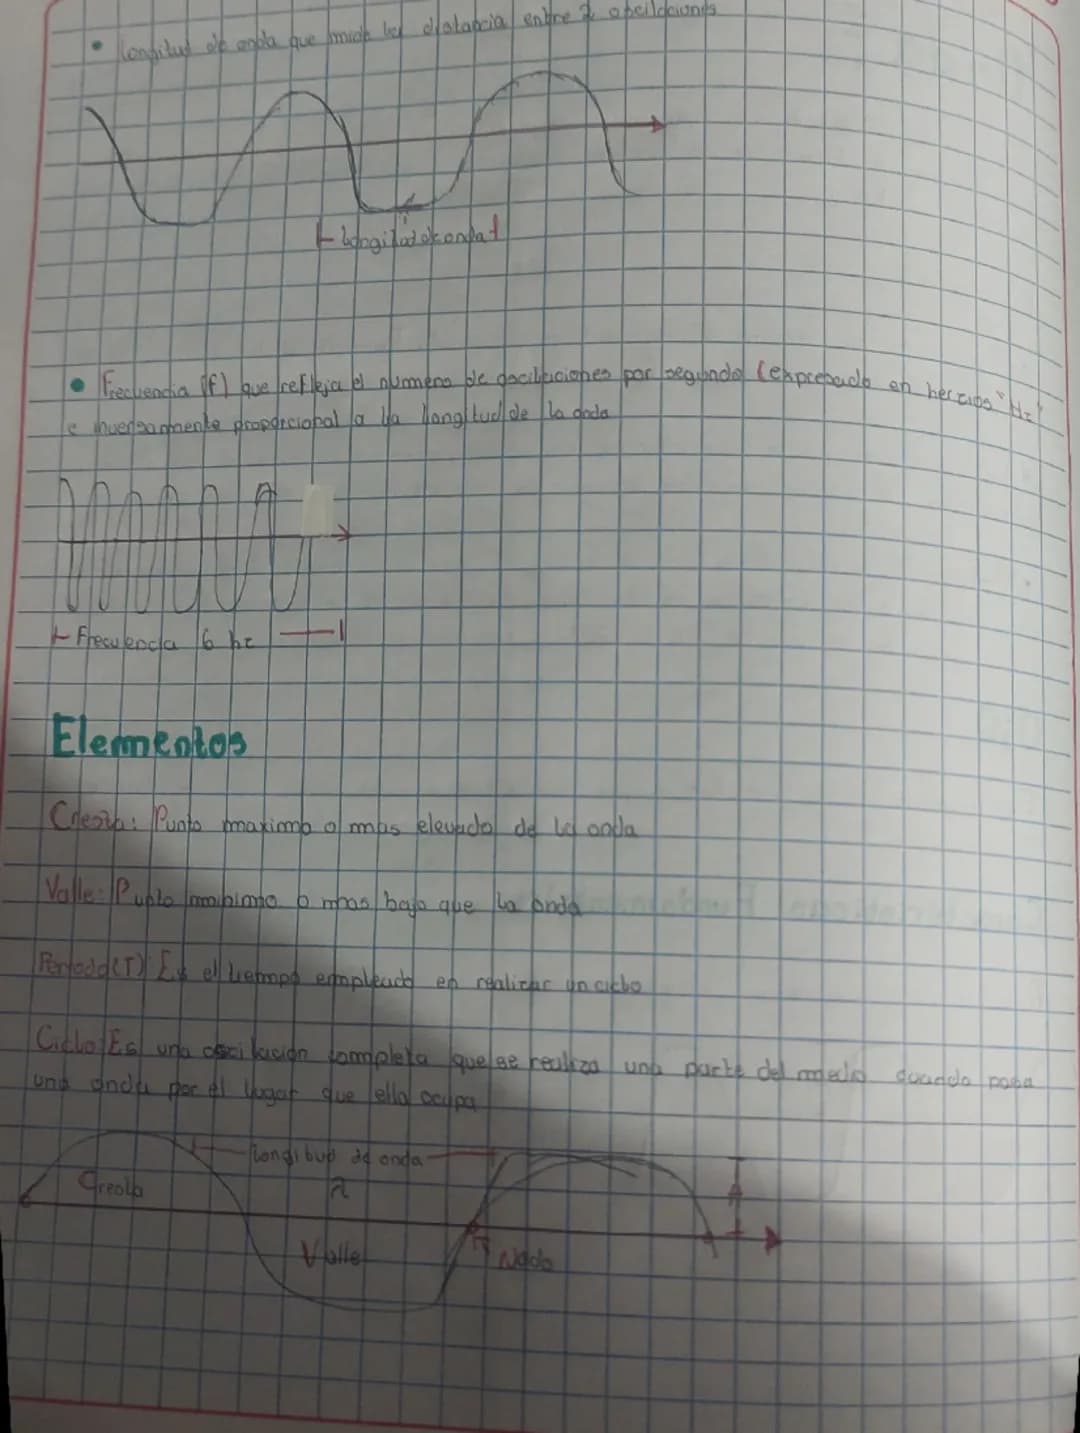 • Longitud de onda que mide la distancia entre 2 oscilaciones
Longitud de onda
• Frecuencia (f) que refleja el numero de oscilaciones por segundo (expresado en hercios "Hz"
e inversamente proporcional a la longitud de la onda
Frecuencia 6 hz
Elementos
Cresta: Punto maximo o mas elevado de la onda
Valle: Punto minimo o mas bajo que la onda
Periodo (T) Es el tiempo empleado en realizar un ciclo
Ciclo Es una oscilacion completa que se realiza una parte del medio cuando pasa
una onda por el lugar que ella ocupa
Longitud de onda
Cresta λ A
Valle Nodo